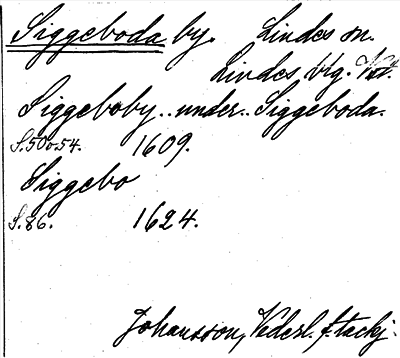 Siggeboda by. Lindes sn.
Lindes btg. Vstm.
Siggeboby .. under .. Siggeboda.
S. 50 o 54. 1609.
Siggebo
S. 86. 1624.
Johansson, Vederl. f. tackj.